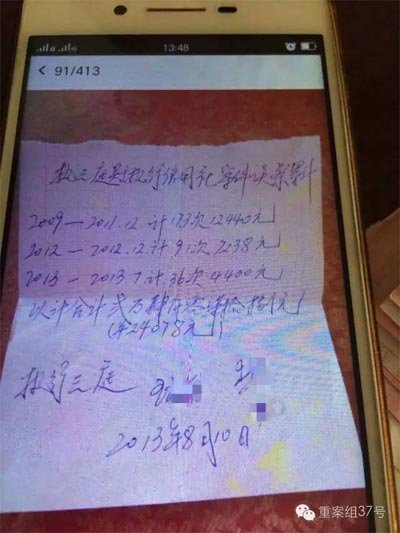 13:48
91/413
执三庭对执行信用社案件误餐累计
2009—2011.12计173次12440元
2012—2012.12计91次7238元
2013—2013.7计36次4400元
以计合计贰万肆仟零柒拾捌元
(¥24078元)
执行三庭
2013年8月10日
重案组37号